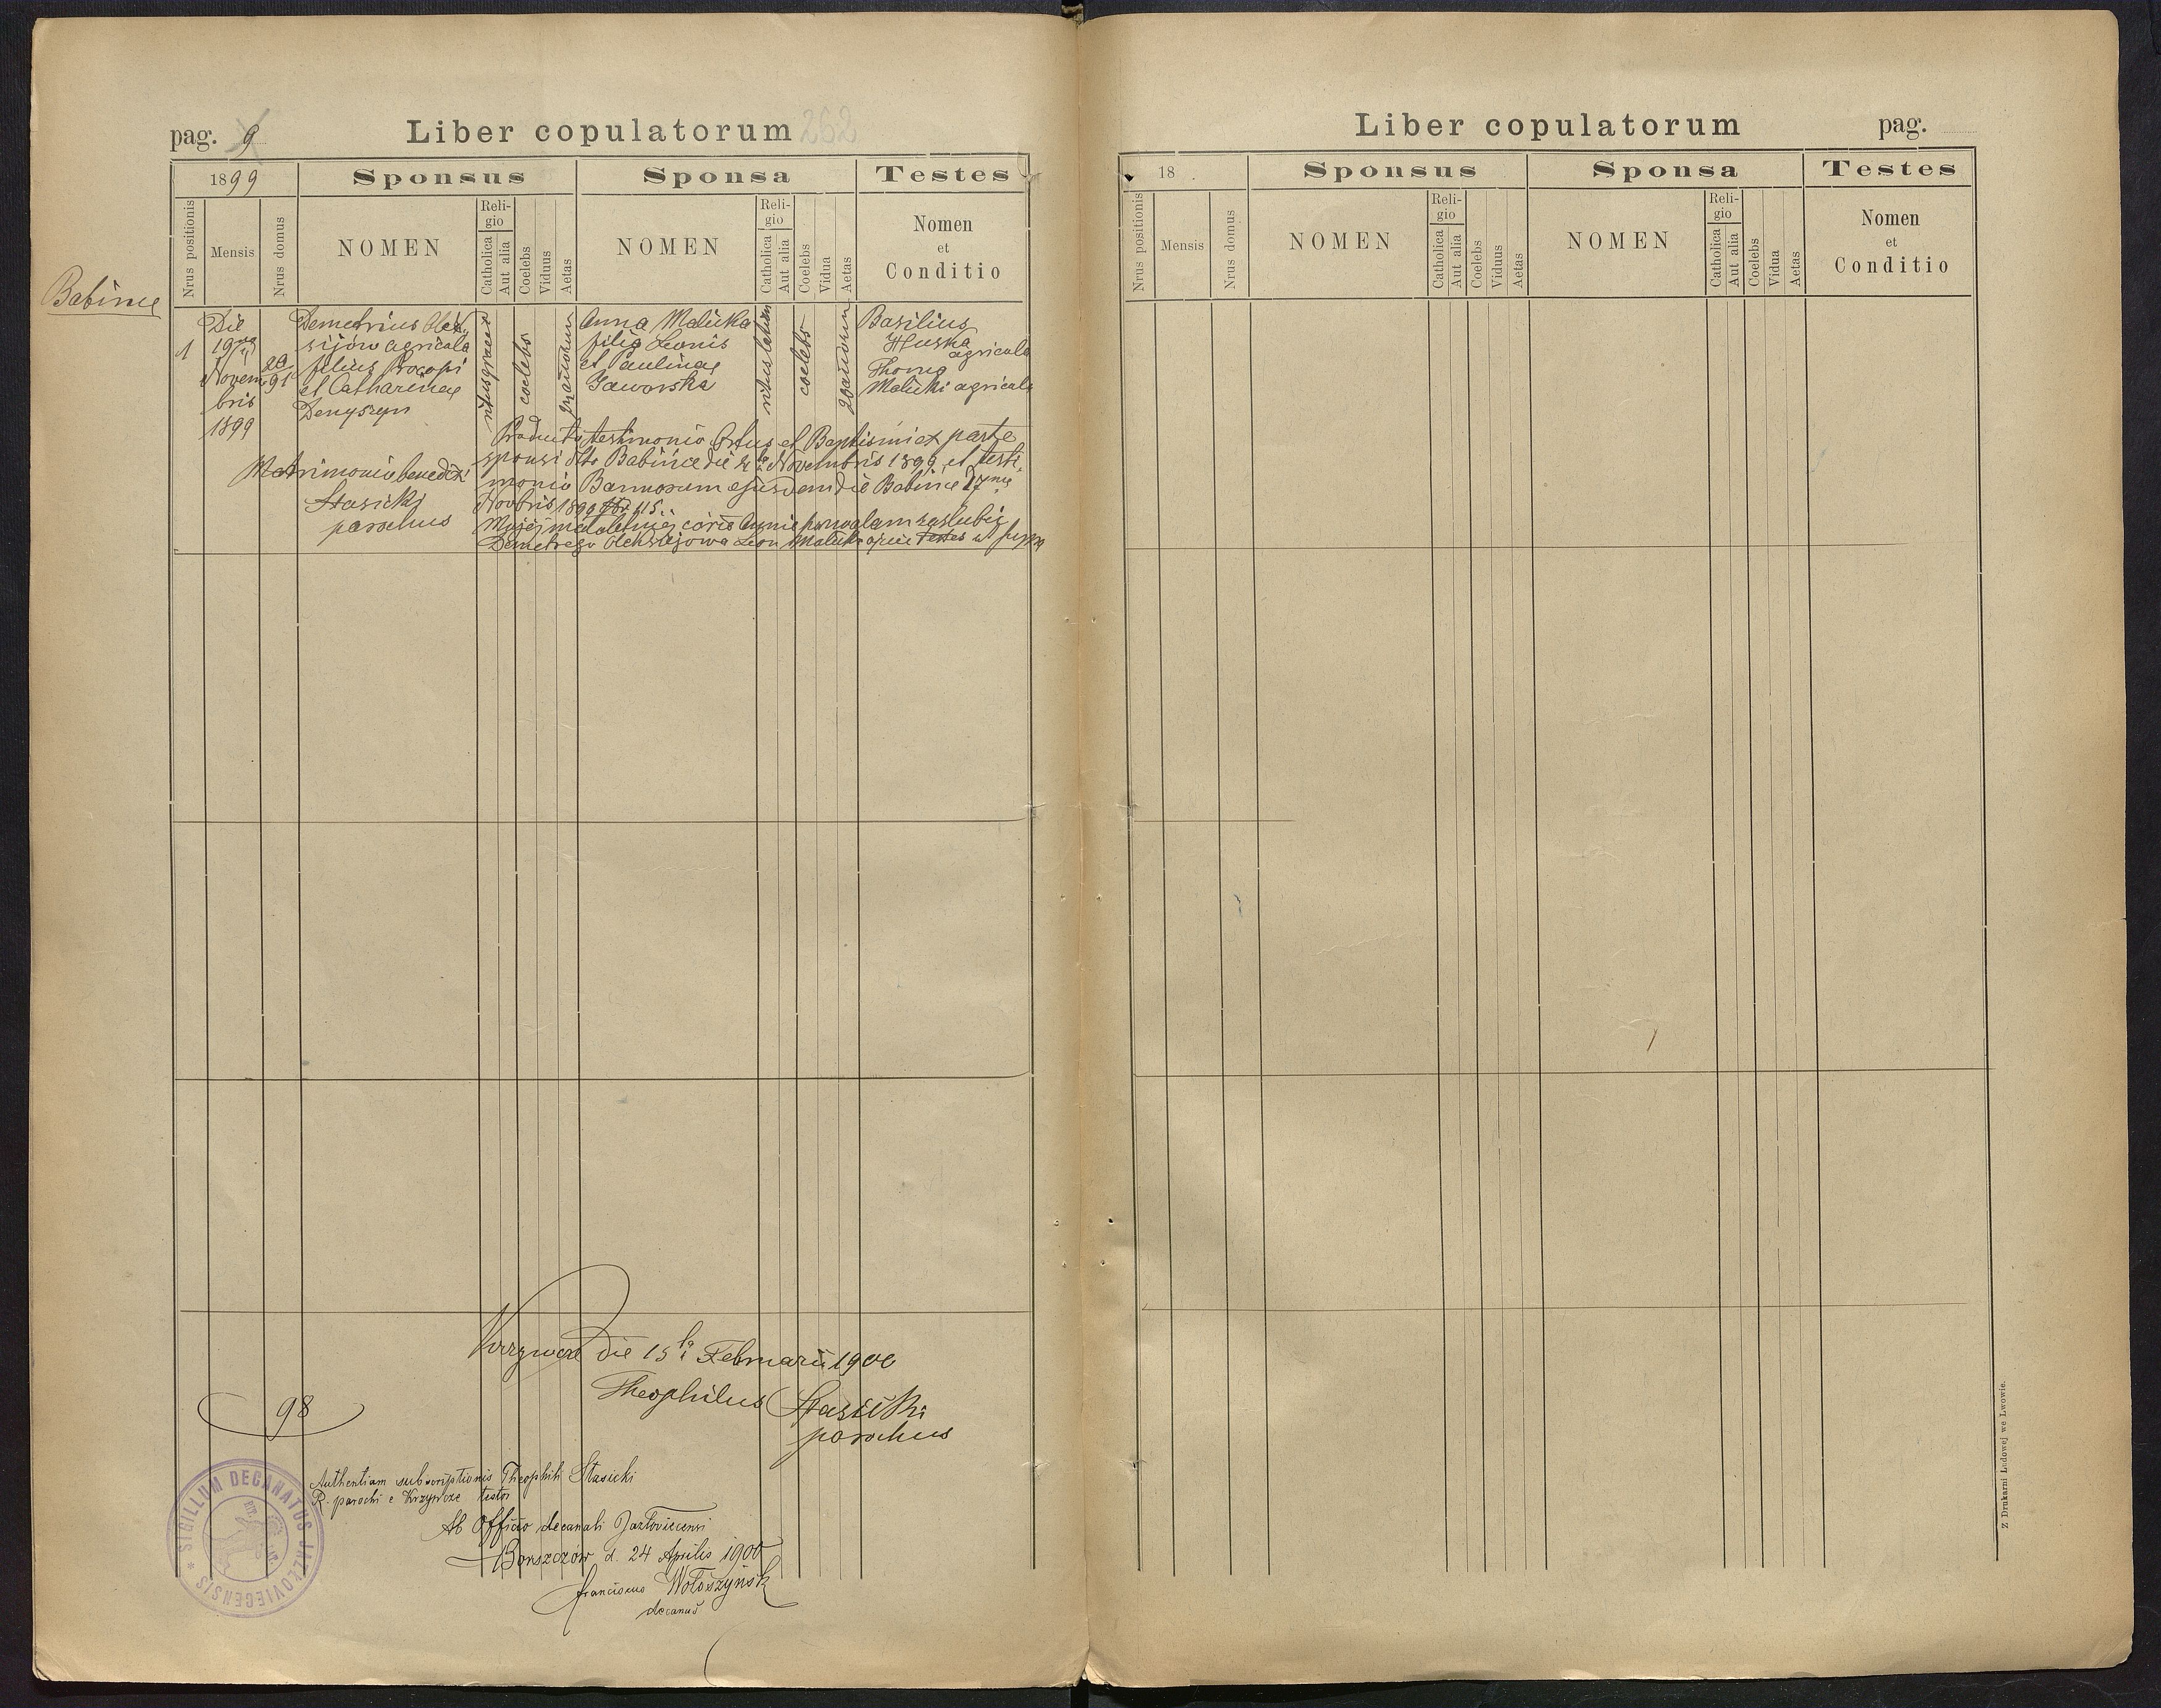 pag. 9
Liber copulatorum 262
1899
Sponsus
Sponsa
Testes
Nrus positionis
Mensis
Nrus domus
NOMEN
Religio
Catholica
Aut alia
Coelebs
Viduus
Aetas
NOMEN
Religio
Catholica
Aut alia
Coelebs
Vidua
Aetas
Nomen
et
Conditio
Babince
1
Die
19
Novem
bris
1899
91
Demetrius Olek
sijow agricola
filius Procopi
et Catharinae
Denyszyn
ritus graeci
coelebs
annorum
Anna Malicka
filia Leonis
et Paulinae
Jaworska
ritus latini
coelebs
20 annorum
Basilius
Huska
agricola
Thoma
Malicki agricola
Matrimonio benedixi
Stasicki
parochus
Producto testimonio Ortus et Baptismi ex parte
sponsi dtto Babince die Novembris 1899 et testi
monio Bannorum ejusdem die Babince 17
Novbris 1899 115.
Mojej małoletniej córce Annie pozwalam zaślubić
Demetrego Oleksijowa Leon Malicki ojciec Testes ut supra
Krzywcze die 15 Februarii 1900
Theophilus Stasicki
parochus
98
Authentiam subscriptionis Theophili Stasicki
R. parochi e Krzywcze testor
Ab Officio decanali Jazłoviecensi
Borszczów d. 24 Aprilis 1900
Franciscus Wołoszyński
decanus
* SIGILLUM DECANATUS JAZLOVIECENSIS
Liber copulatorum
pag.
18
Sponsus
Sponsa
Testes
Nrus positionis
Mensis
Nrus domus
NOMEN
Religio
Catholica
Aut alia
Coelebs
Viduus
Aetas
NOMEN
Religio
Catholica
Aut alia
Coelebs
Vidua
Aetas
Nomen
et
Conditio
Z Drukarni Ludowej we Lwowie.